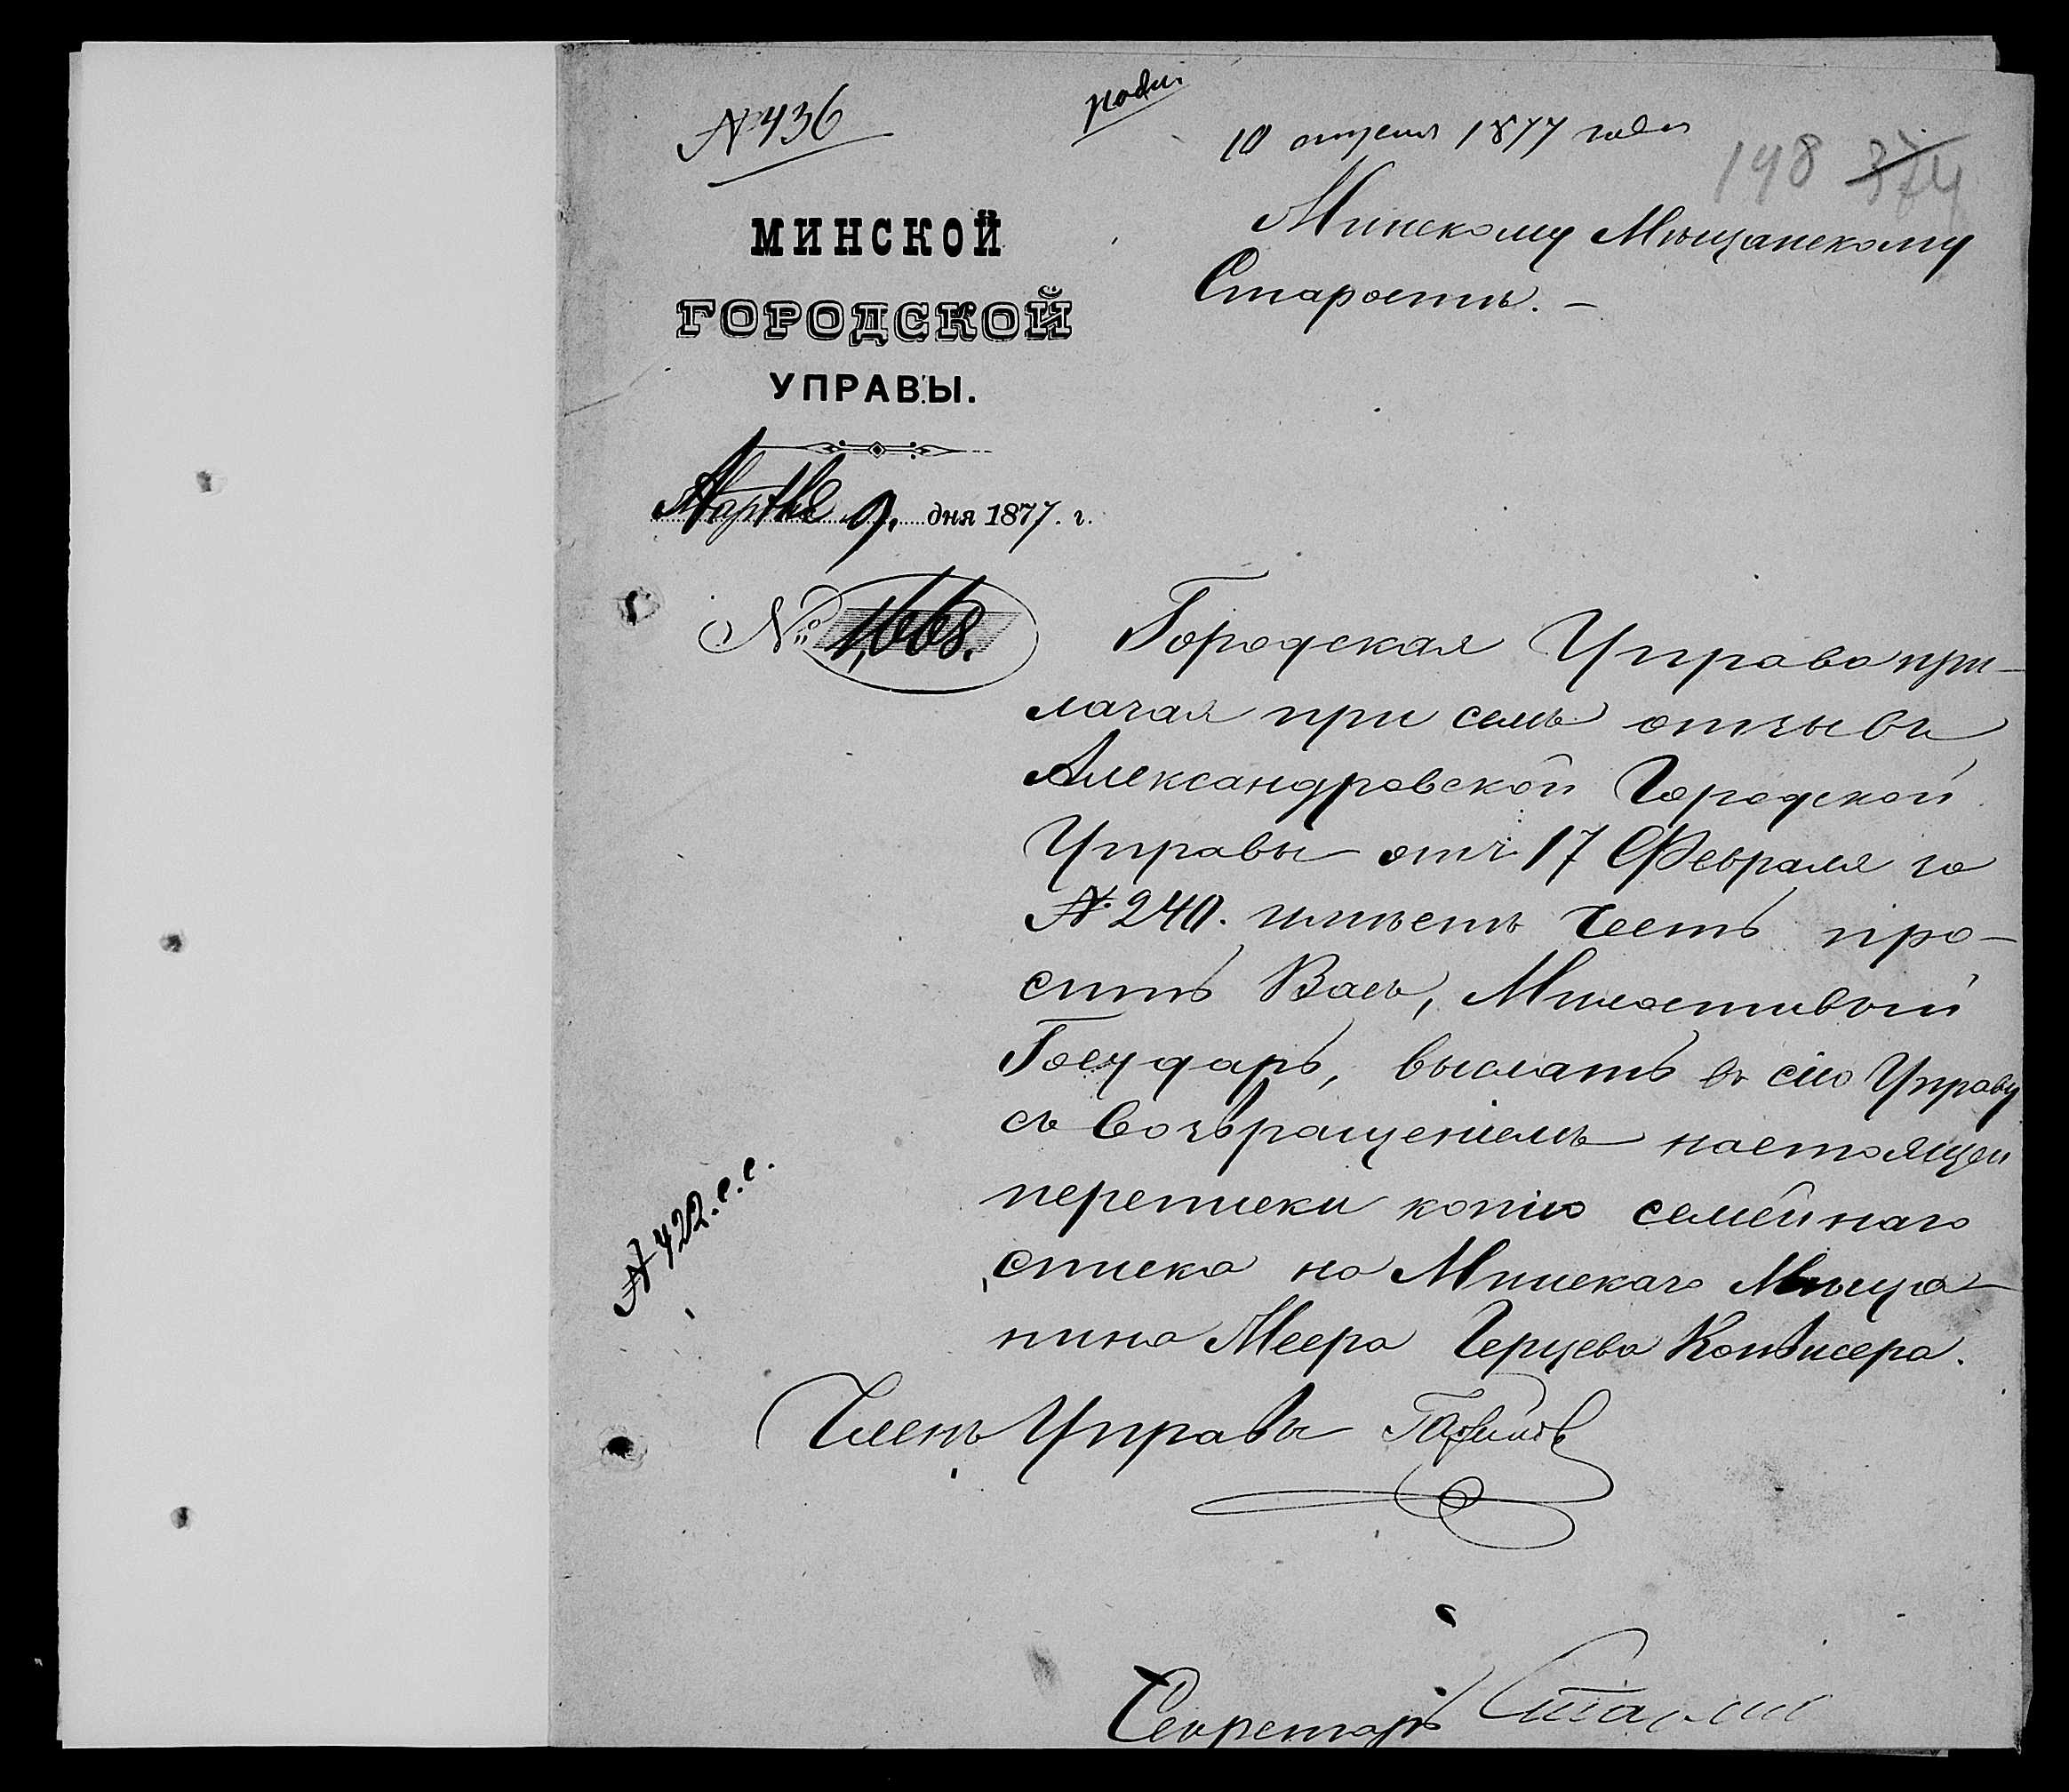 № 436
10 апреля 1877 года
198 374
Минскому Мѣщанскому
Старостѣ. —
МИНСКОЙ
ГОРОДСКОЙ
УПРАВЫ.
Марта 9. дня 1877. г.
№ 1,668.
Городская Управа при-
лагая при семъ отзывъ
Александровской Городской
Управы отъ 17 Февраля за
№ 240. имѣетъ честь про-
сить Васъ, Милостивый
Государь, выслать въ сію Управу
съ возвращеніемъ настоящей
переписки копію семейнаго
списка на Минскаго Мѣща-
нина Меера Герцева Конвисера.
№ 422. с. с.
Членъ Управы
Секретарь